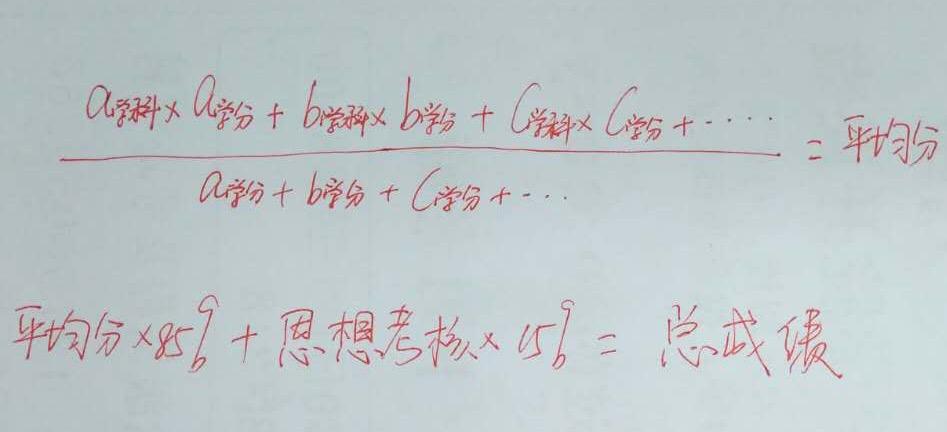 a学科×a学分+b学科×b学分+C学科×C学分+····
a学分+b学分+C学分+··· =平均分
平均分×85%+思想考核×15%=总成绩